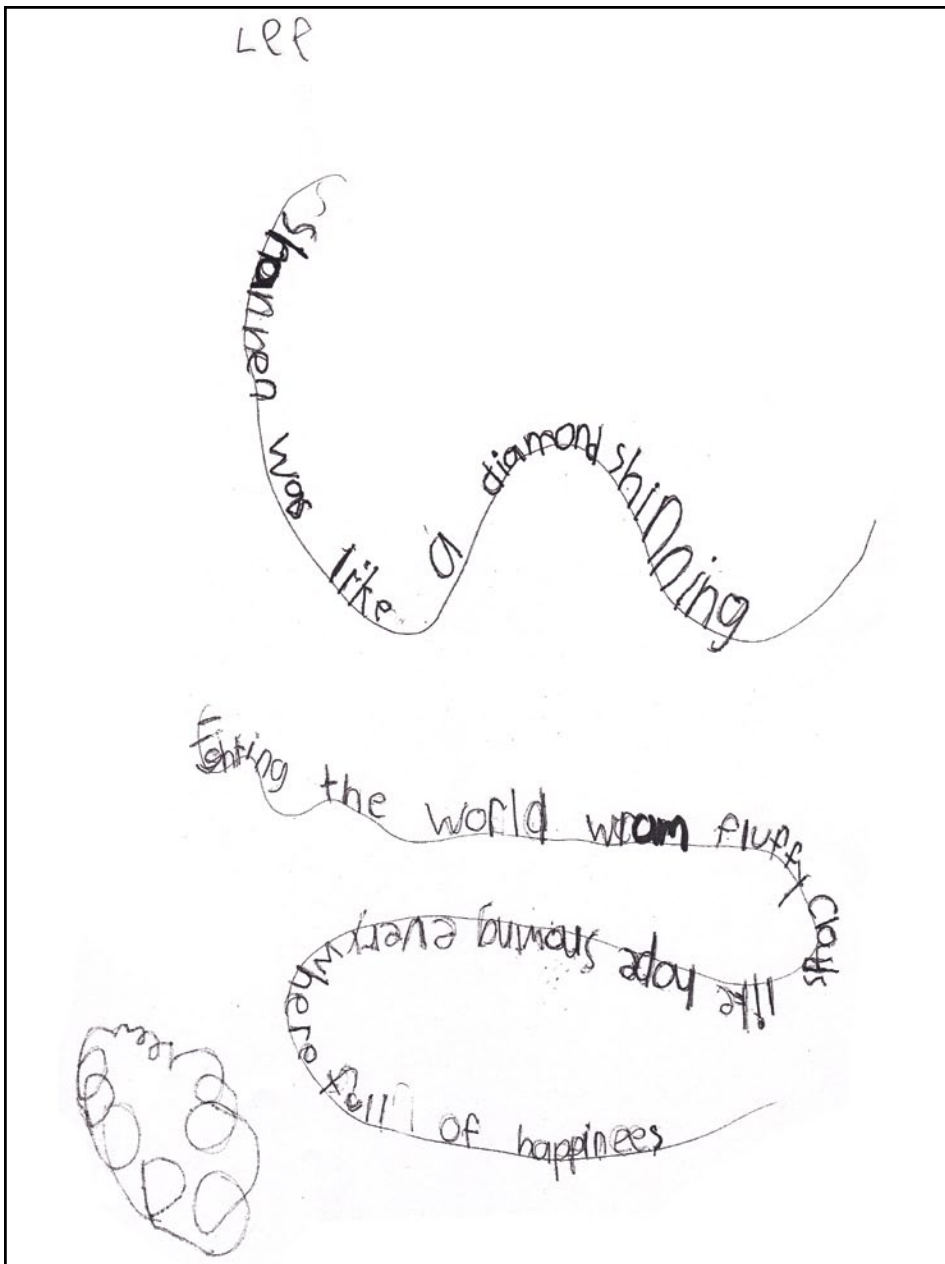 Lee
Shannen was like a diamond shinning
the world wram fluffy
like hope snowing every
where full of happinees